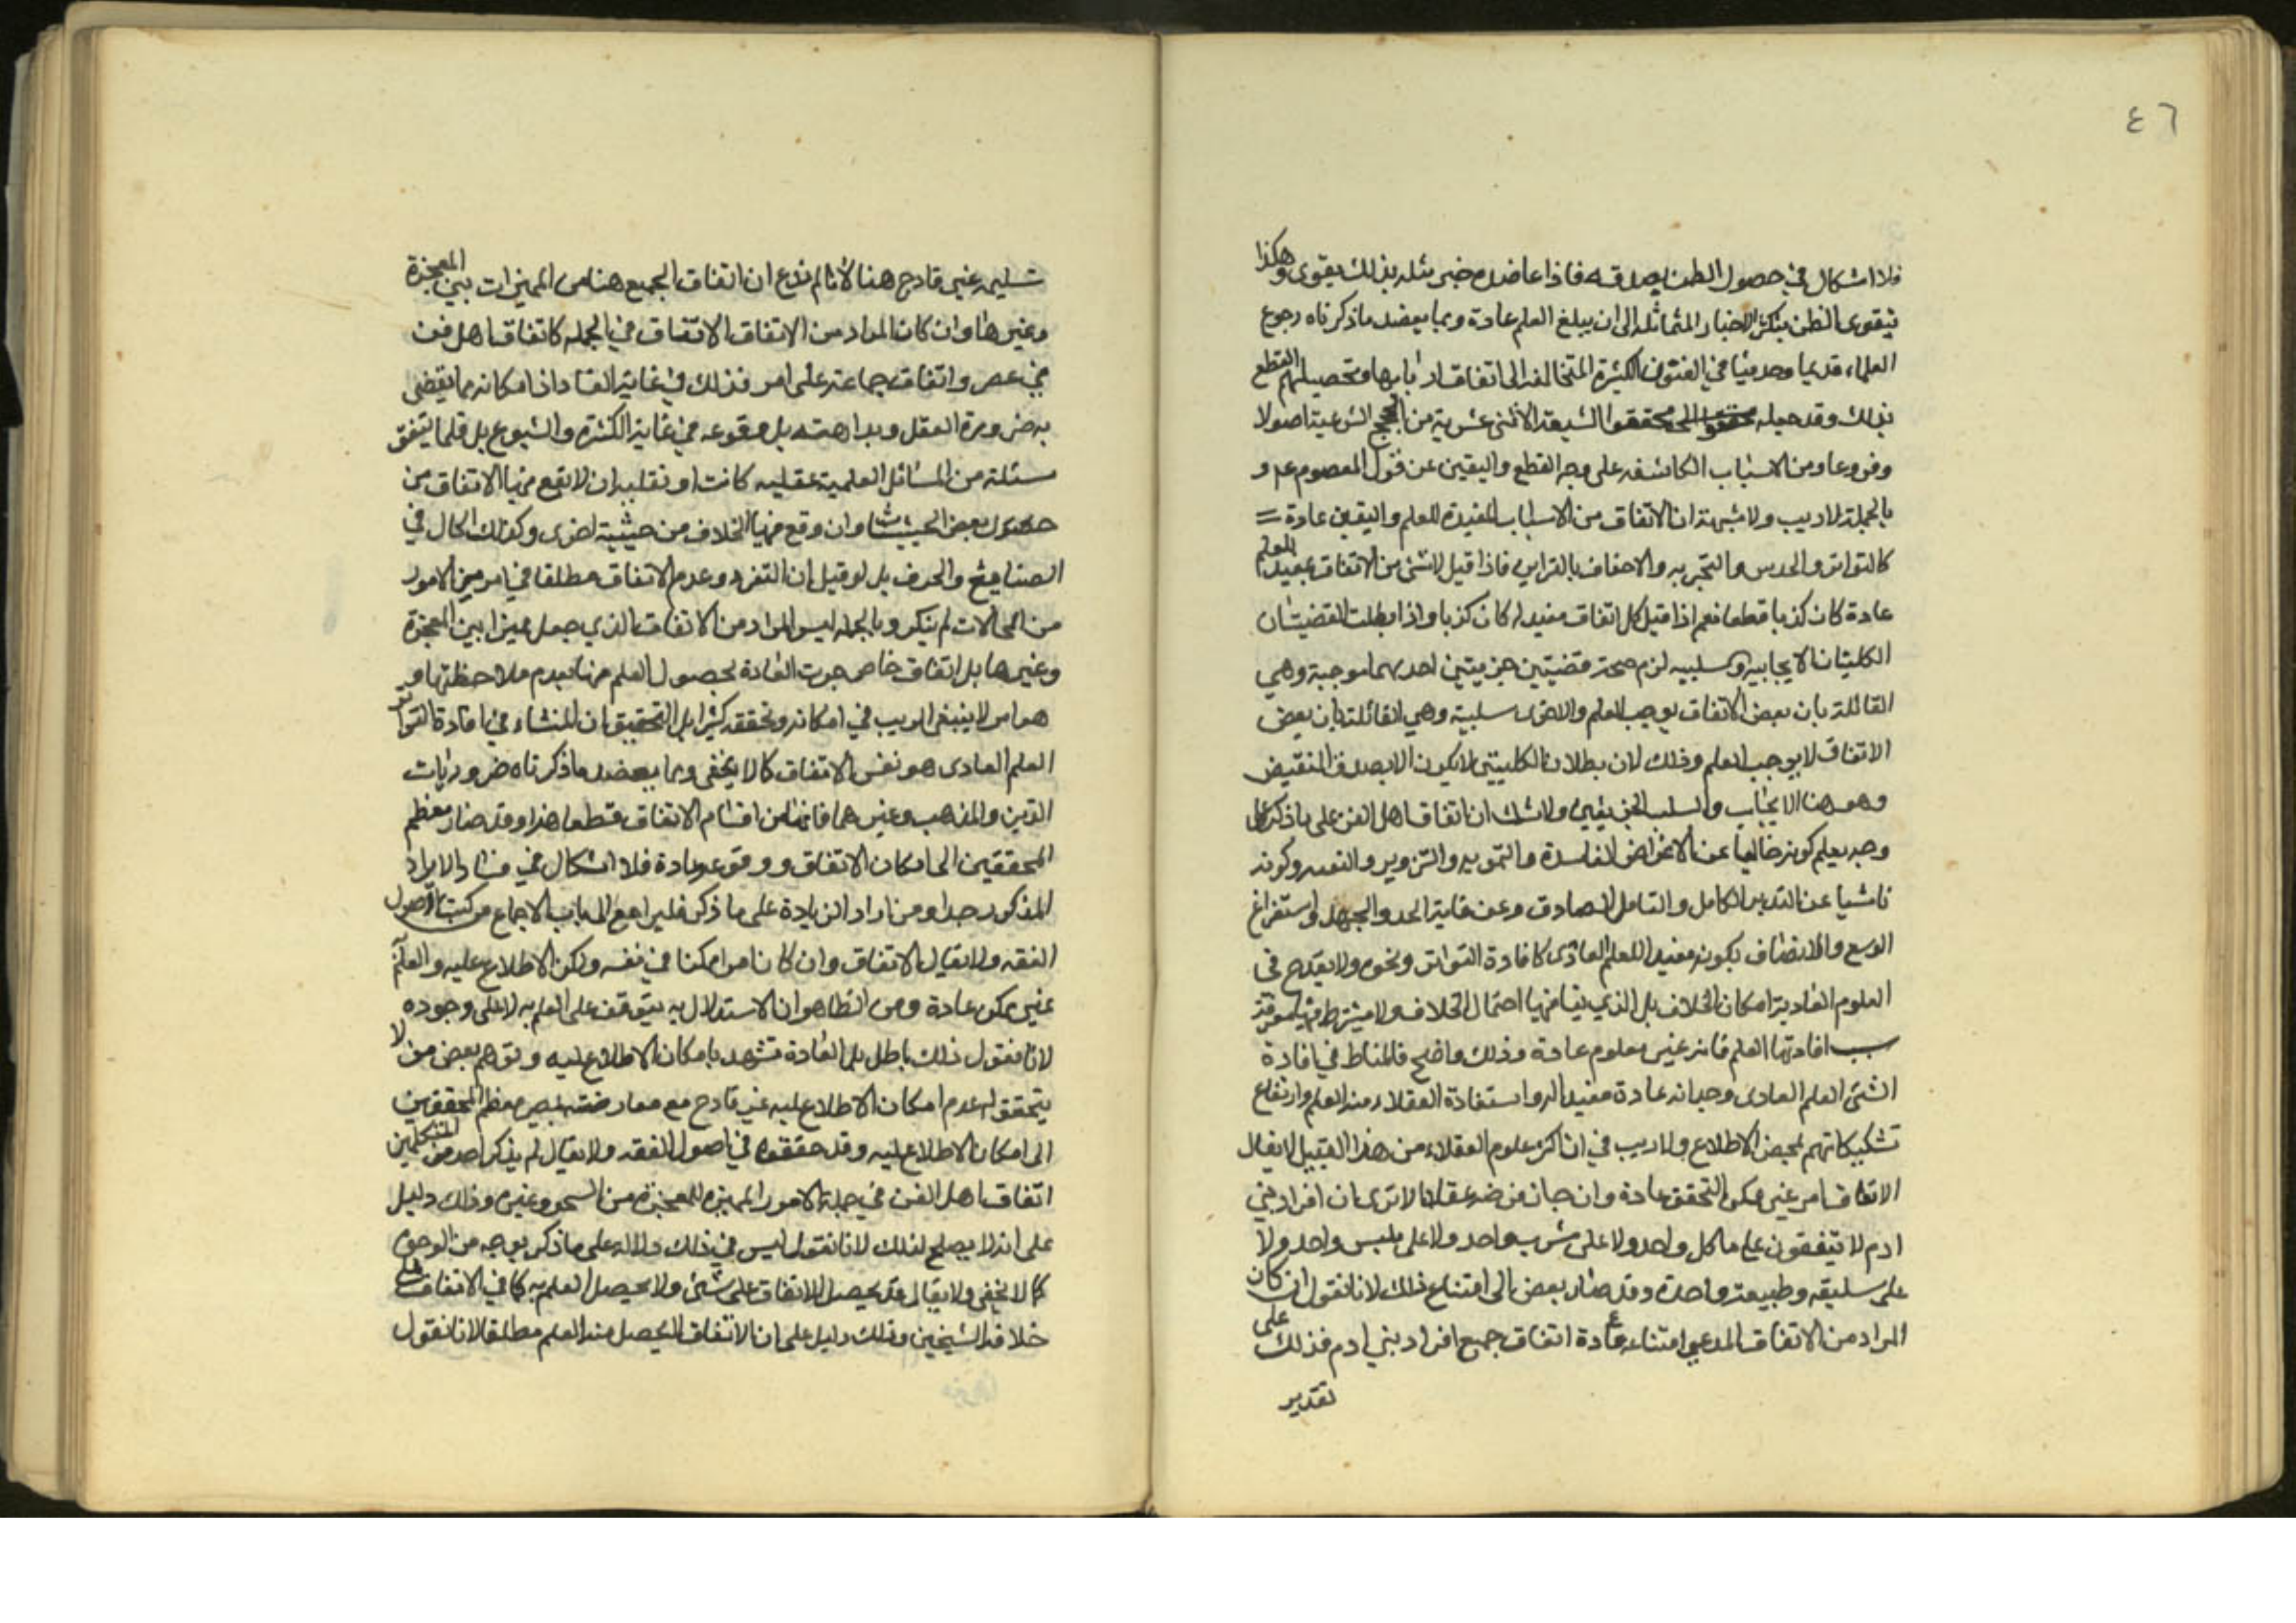 ٤٦
فلا اشكال في حصول الظن بصدقه فاذا عاضده خبر مثله بذلك يقوى وهكذا
يتقوى الظن بتكثر الاخبار المتماثله الى ان يبلغ العلم عادة ومما يعضد ماذكرناه رجوع
العلماء قديما وحديثا في الفنون الكثيرة المتخالفه الى اتفاق اربابها وتحصيلهم القطع
بذلك وقد جعله محققوا الشيعة الاثنى عشرية من الحجج الشرعية اصولا
وفروعا ومن الاسباب الكاشفه على وجه القطع واليقين عن قول المعصوم ع و
بالجملة لا ريب ولا شبهة ان الاتفاق من الاسباب المفيدة للعلم واليقين عادة =
كالتواتر والحدس والتجربه والاحفاف بالقراين فاذا قيل لا شئ من الاتفاق بمفيد للعلم
عادة كان كذبا قطعا نعم اذا قيل كل اتفاق مفيد له كان كذبا واذا بطلت القضيتان
الكليتان الايجابيه والسلبيه لزم صحة قضيتين جزئيتين احديهما موجبة وهي
القائلة بان بعض الاتفاق يوجب العلم والاخرى سلبية وهي القائلة بان بعض
الاتفاق لا يوجب العلم وذلك لان بطلان الكليتين لا يكون الا بصدق النقيض
وهو هنا الايجاب والسلب الجزئيين ولا شك ان اتفاق اهل الفن على ما ذكر على
وجه يعلم كونه خاليا عن الاغراض الفاسدة والتمويه والتزوير والتعسف وكونه
ناشيا عن التدبر الكامل والتامل الصادق وعن غاية الجد والجهد واستفراغ
الوسع والانصاف يكون مفيدا للعلم العادى كافادة التواتر ونحوه ولا يقدح في
العلوم العادية امكان الخلاف بل الذي ينافيها احتمال الخلاف ولا يشترط فيها معرفة
سبب افادتها العلم فانه غير معلوم عادة وذلك واضح فالمناط في افادة
الشئ العلم العادى وجدانه عادة مفيدا له واستفادة العقلاء منه العلم وارتفاع
تشكيكاتهم بمحض الاطلاع ولا ريب في ان اكثر علوم العقلاء من هذا القبيل لا يقال
الاتفاق امر غير ممكن التحقق عادة وان جاز فرضه عقلا الا ترى ان افراد بني
ادم لا يتفقون على ماكل واحد ولا على مشرب واحد ولا على ملبس واحد ولا
على سليقه وطبيعة واحدة وقد صار بعض الى امتناع ذلك لانا نقول ان كان
المراد من الاتفاق المدعى امتناعه عادة اتفاق جميع افراد بني ادم فذلك على
تقدير
تسليمه غير قادح هنا لانا لم ندع ان اتفاق الجميع هنا من المميزات بين المعجزة
وغيرها وان كان المراد من الاتفاق الاتفاق في الجمله كاتفاق اهل فن
في عصر واتفاق جماعة على امر فذلك في غاية الفساد اذ امكانه مما يقضى
به ضرورة العقل وبداهته بل وقوعه في غاية الكثرة والشيوع بل قلما يتفق
مسئلة من المسائل العلمية عقليه كانت او نقليه ان لا يقع فيها الاتفاق من
بعض الحيثيات وان وقع فيها الخلاف من حيثية اخرى وكذلك الحال في
الصنايع والحرف بل لو قيل ان التفرد وعدم الاتفاق مطلقا في امر من الامور
من المحالات لم ينكر وبالجمله ليس المراد من الاتفاق الذي جعل مميزا بين المعجزة
وغيرها بل اتفاق خاص جرت العادة بحصول العلم منه بعد ملاحظتها و
هو امر لا ينبغي الريب في امكانه وتحققه كثيرا بل التحقيق ان المنشاء في افادة التواتر
العلم العادى هو نفس الاتفاق كما لا يخفى ومما يعضد ماذكرناه ضروريات
الدين والمذهب وغيرهما فانها من اقسام الاتفاق قطعا هذا وقد صار معظم
المحققين الى امكان الاتفاق ووقوعه عادة فلا اشكال في فساد الايراد
المذكور جدا ومن اراد الزيادة على ما ذكر فليراجع الى باب الاجماع من كتب اصول
الفقه ولا يقال الاتفاق وان كان امرا ممكنا في نفسه ولكن الاطلاع عليه والعلم به
غير ممكن عادة ومن الظاهر ان الاستدلال به يتوقف على العلم به لا على وجوده
لانا نقول ذلك باطل بل العادة تشهد بامكان الاطلاع عليه وتوهم بعض من لا
يتحقق له عدم امكان الاطلاع عليه غير قادح مع معارضته بمصير معظم المحققين
الى امكان الاطلاع عليه وقد حققوه في اصول الفقه ولا يقال لم يذكر احد من المتكلمين
اتفاق اهل الفن في جملة الامور المميزه للمعجزة من السحر وغيره وذلك دليل
على انه لا يصلح لذلك لانا نقول ليس في ذلك دلاله على ما ذكر بوجه من الوجوه
كما لا يخفى ولا يقال قد يحصل الاتفاق على شئ ولا يحصل العلم به كما في الاتفاق على
خلافة الشيخين وذلك دليل على ان الاتفاق لا يحصل منه العلم مطلقا لانا نقول